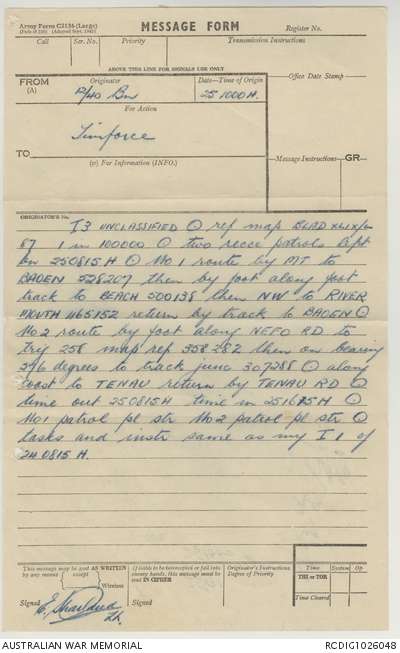 Army Form C2136 (Large)
MESSAGE FORM
Register No.
Call
Ser. No.
Priority
Transmission Instructions
ABOVE THIS LINE FOR SIGNALS USE ONLY
FROM
(A)
Originator
Date—Time of Origin
Office Date Stamp
12/40 Bn
25 1000 H.
For Action
Timforce
TO
(W) For Information (INFO.)
Message Instructions
GR
ORIGINATOR'S No.
I3 UNCLASSIFIED O ref map BLAD
87 1 in 100000 O two recce patrols left
bn 250815 H O No 1 route by MT to
BAOEN 528207 then by foot along foot
track to BEACH 500138 then NW to RIVER
MOUTH 465152 return by track to BAOEN O
No 2 route by foot along NEFO RD to
try 258 map ref 358282 then on bearing
296 degrees to track junc 307288 O along
coast to TENAU return by TENAU RD O
time out 250815H time in 251615 H O
No 1 patrol pl str No 2 patrol pl str O
tasks and instr same as my I 1 of
240815 H.
This message may be sent AS WRITTEN
by any means except
Wireless
If liable to be intercepted or fall into
enemy hands, this message must be
sent IN CIPHER
Originator's Instructions
Degree of Priority
Time
System
Op
THI or TOR
Time Cleared
Signed
Lt.
Signed
AUSTRALIAN WAR MEMORIAL
RCDIG1026048